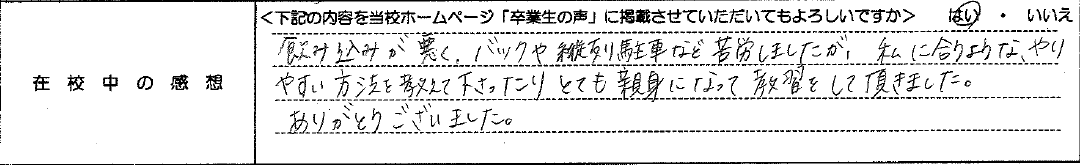 <下記の内容を当校ホームページ「卒業生の声」に掲載させていただいてもよろしいですか> はい ・ いいえ
在校中の感想
飲み込みが悪く、バックや縦列駐車など苦労しましたが、私に合うような、やり
やすい方法を教えて下さったりとても親身になって教習をして頂きました。
ありがとうございました。